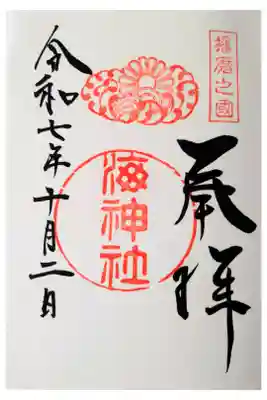 播磨之國
奉拝
海神社
令和七年十月二日